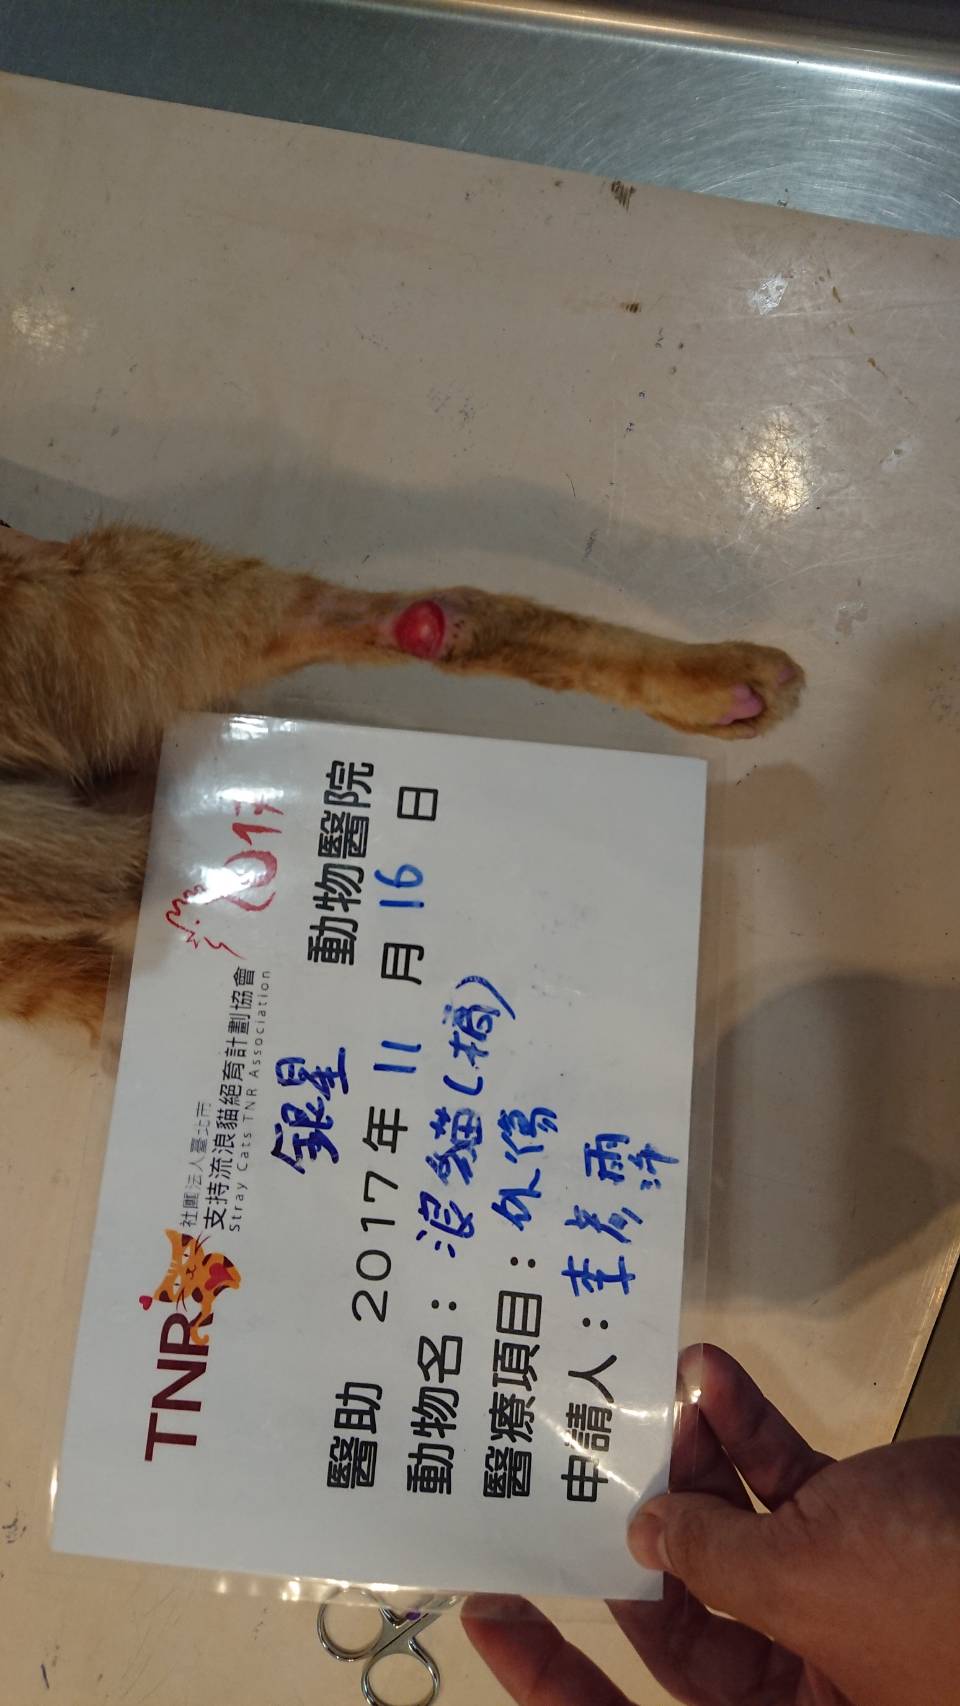 TNR
社團法人臺北市
支持流浪貓絕育計劃協會
Stray Cats TNR Association
2017
銀星 動物醫院
醫助 2017年 11 月 16 日
動物名：浪貓(橘)
醫療項目：外傷
申請人：李